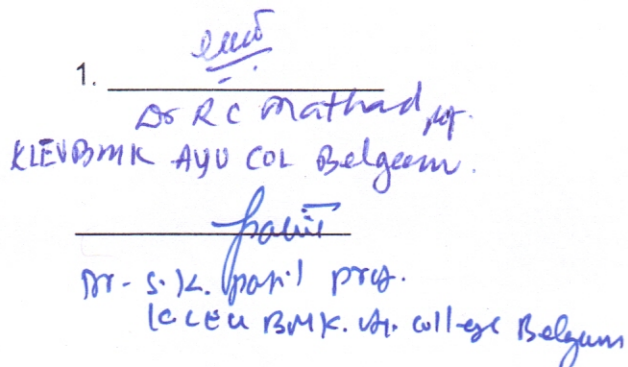 1.
Dr R C Mathad prof.
KLEU BMK AYU COL Belgaum.
Patil
Dr. S. K. Patil prof.
KLEU BMK. Ay. college Belgaum